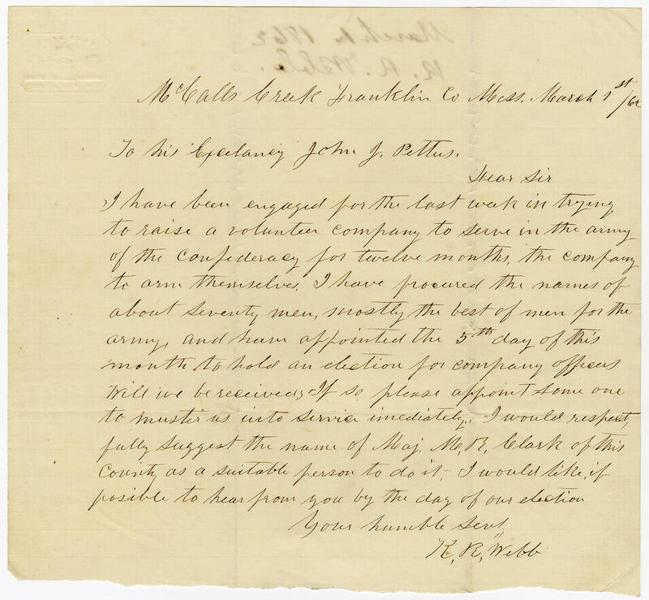 March 1. 1862
R. R. Webb.
McCalls Creek Franklin Co Miss. March 1st /62
To his Excelancy John J. Pettus.
Dear Sir
I have been engaged for the last week in trying
to raise a volunteer company to serve in the army
of the Confederacy for twelve months, the company
to arm themselves. I have procured the names of
about seventy men, mostly the best of men for the
army, and have appointed the 5th day of this
month to hold an election for company officers
Will we be received; If so please appoint some one
to muster us into service imediately. I would respect
fully suggest the name of Maj. M. R. Clark of this
County as a suitable person to do it. I would like, if
posible to hear from you by the day of our election
Your humble Servt
R. R. Webb